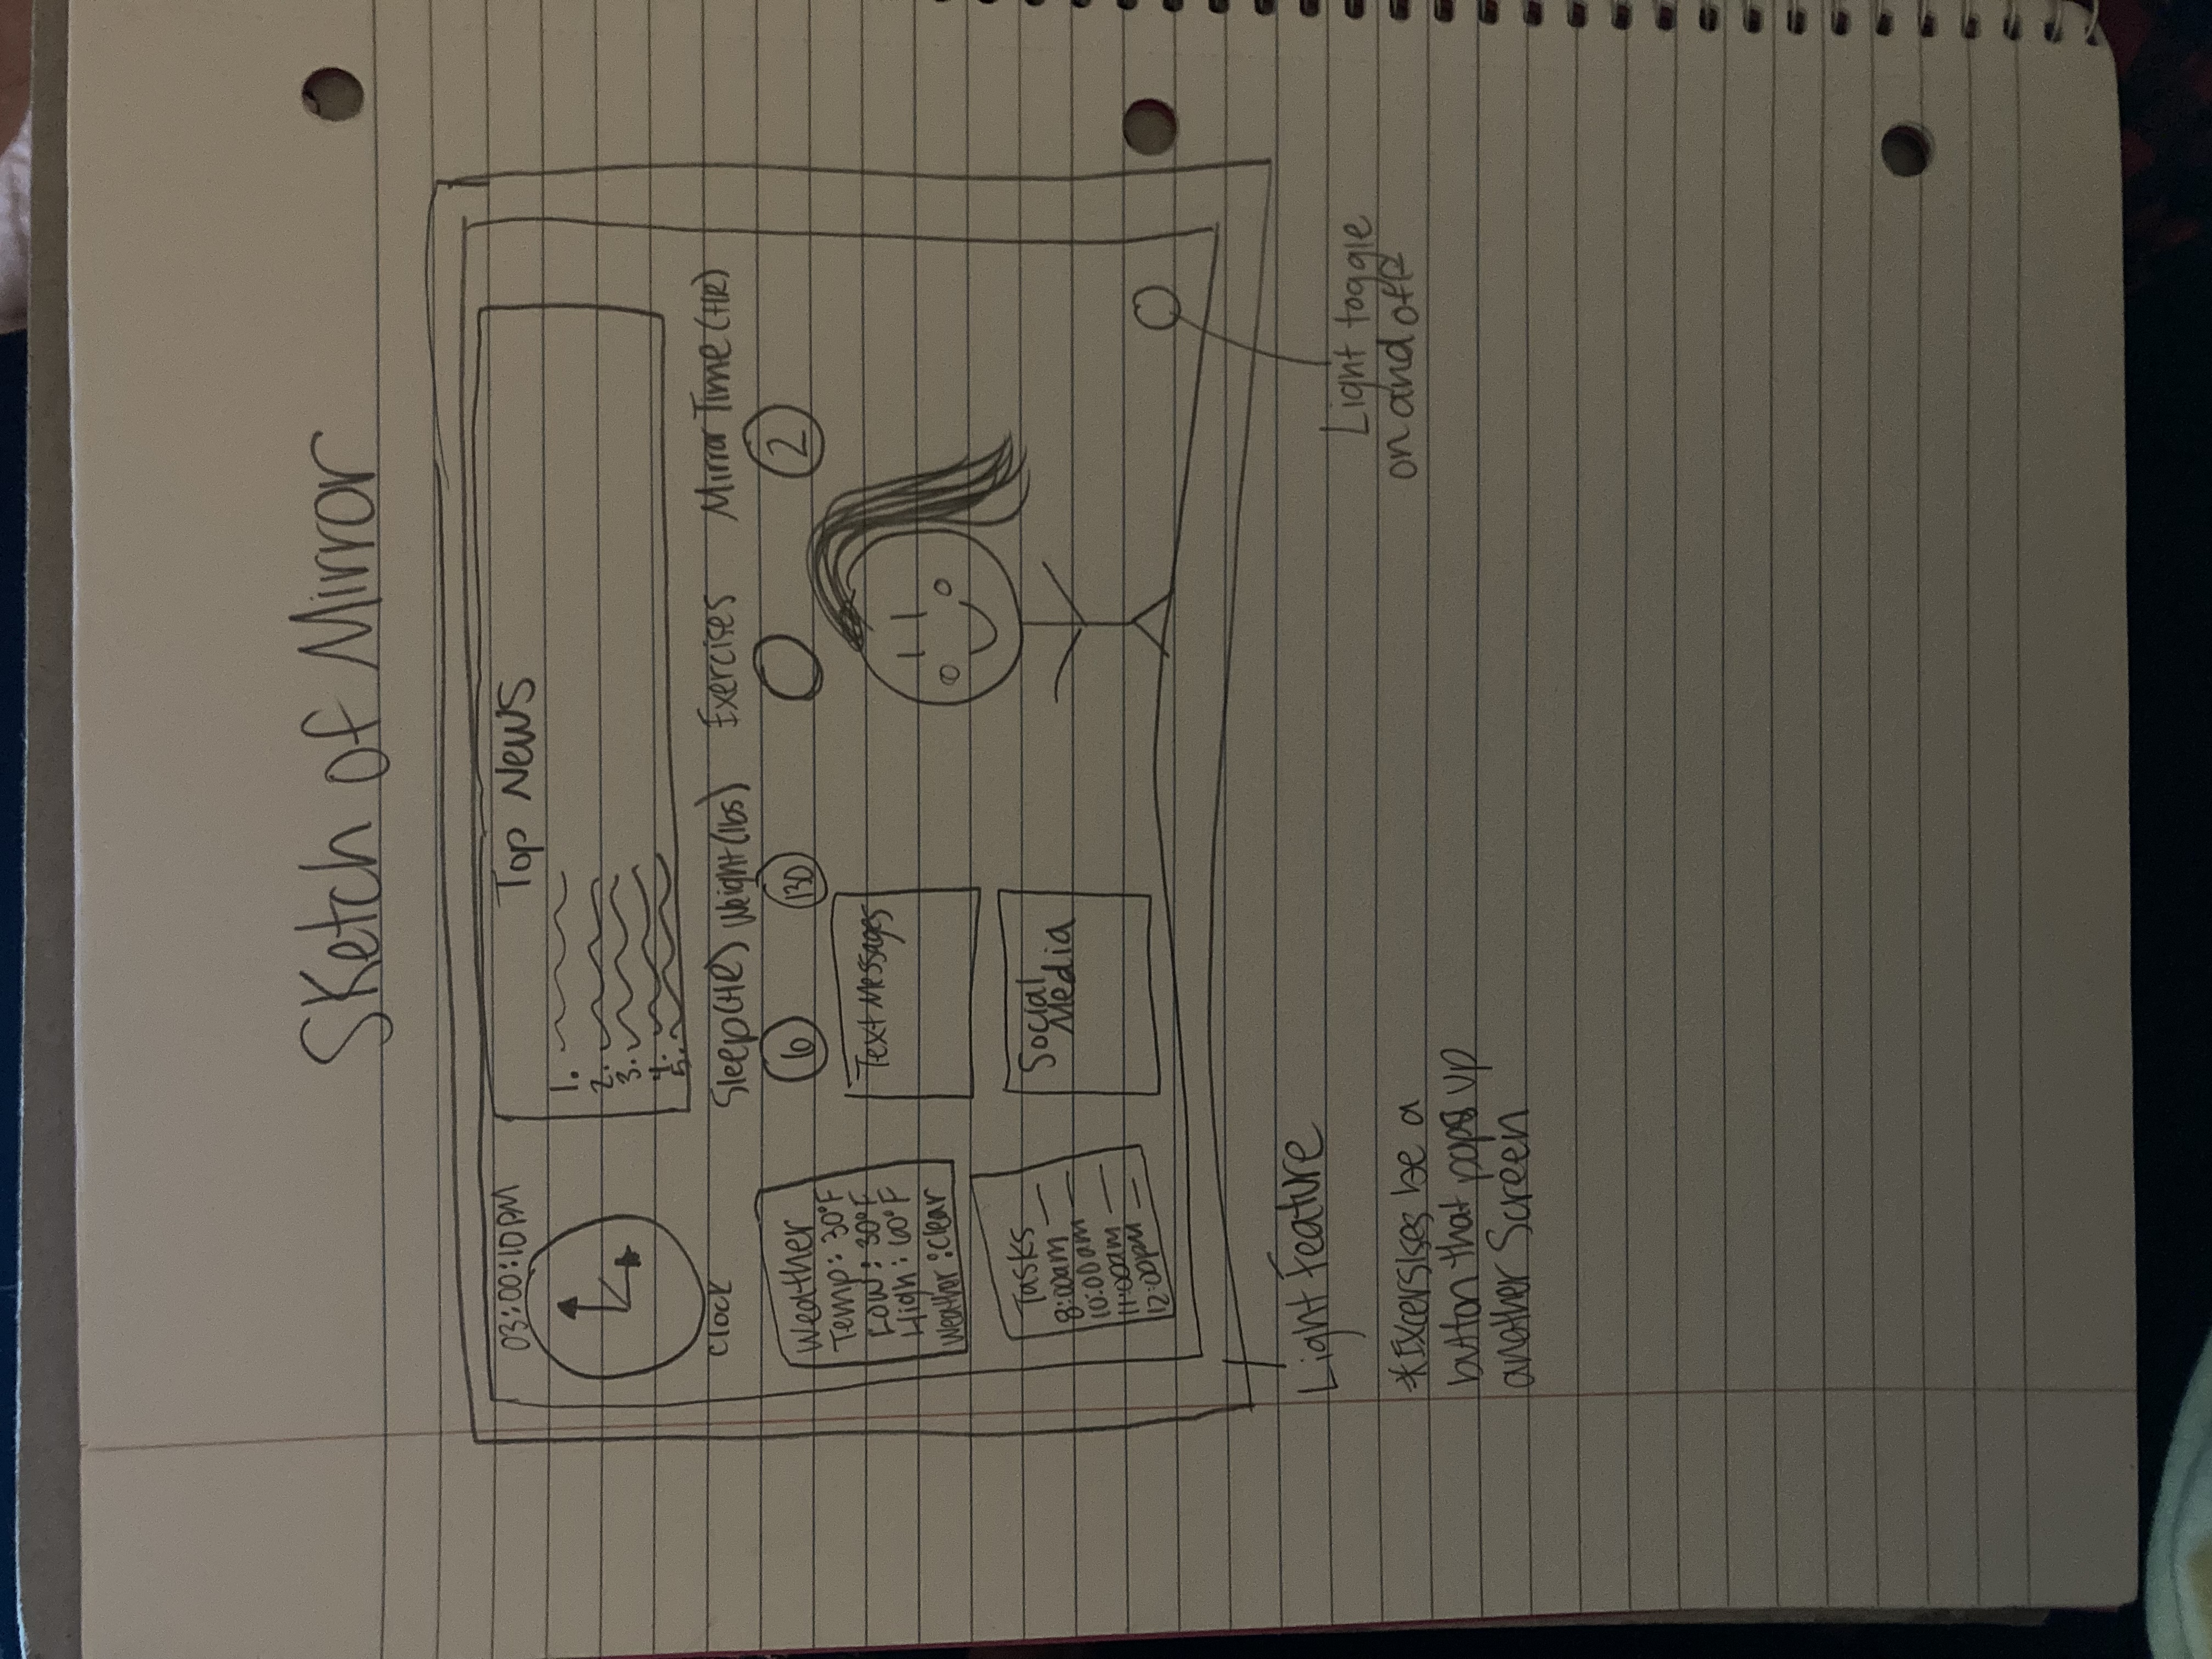 Sketch of Mirror
03:00:10PM
Clock
Top News
1.
2.
3.
4.
5.
Sleep(HR) Weight(lbs) Exercises Mirror Time (HR)
6 130 2
Weather
Temp: 30°F
Low: 30°F
High: 60°F
Weather: clear
Text Messages
Tasks
8:00am
10:00am
11:00am
12:00pm
Social
Media
Light Feature
Light toggle
on and off
*Excersises be a
button that pops up
another Screen